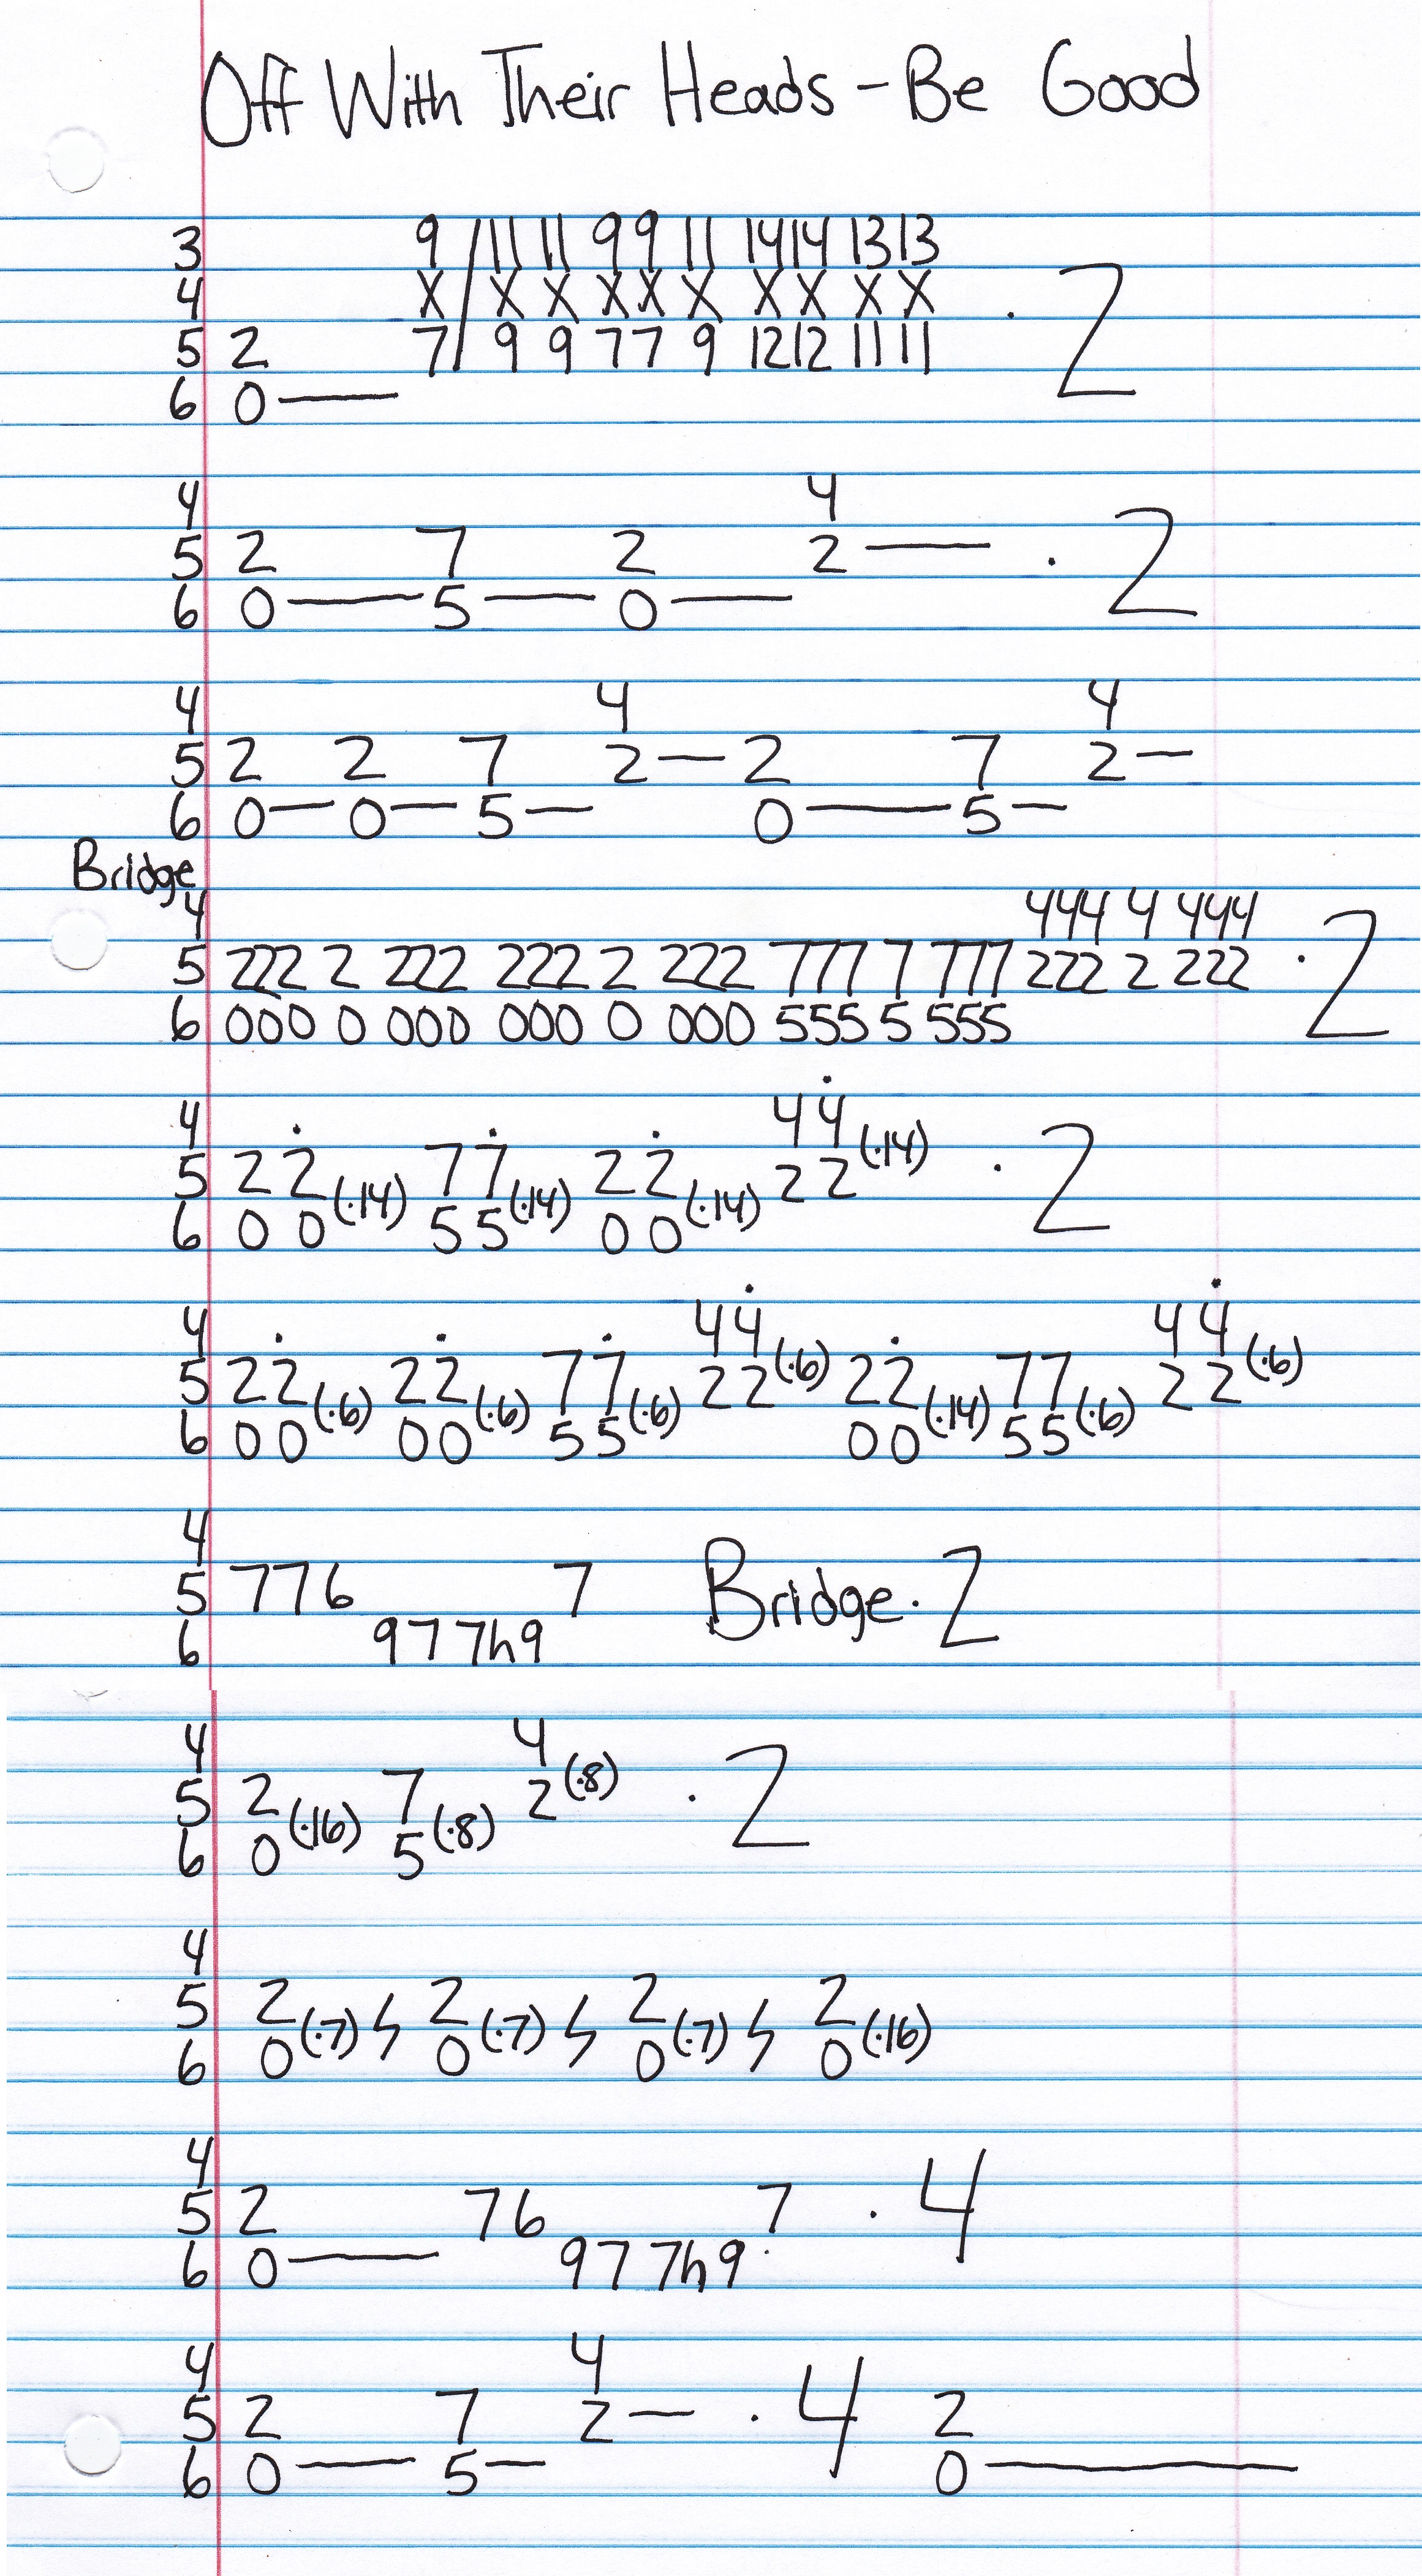 Off With Their Heads - Be Good
3 9 / 11 11 9 9 11 14 14 13 13
4 X / X X X X X X X X X · 2
5 2 7 / 9 9 7 7 9 12 12 11 11
6 0 —
4 4
5 2 7 2 2 — · 2
6 0 — 5 — 0 —
4 4 4
5 2 2 7 2 — 2 7 2 —
6 0 — 0 — 5 — 0 — 5 —
Bridge
4 444 4 444
5 222 2 222 222 2 222 777 7 777 222 2 222 · 2
6 000 0 000 000 0 000 555 5 555
4 4 4̇
5 2 2̇ 7 7̇ 2 2̇ 2 2 (·14) · 2
6 0 0 (·14) 5 5 (·14) 0 0 (·14)
4 4 4̇ 4 4̇
5 2 2̇ 2 2̇ 7 7̇ 2 2 (·6) 2 2̇ 7 7 2 2 (·6)
6 0 0 (·6) 0 0 (·6) 5 5 (·6) 0 0 (·14) 5 5 (·6)
4
5 7 7 6 7 Bridge · 2
6 9 7 7h9
4 4
5 2 7 2 (·8) · 2
6 0 (·16) 5 (·8)
4
5 2 2 2 2
6 0 (·7) 0 (·7) 0 (·7) 0 (·16)
4
5 2 7 6 7 · 4
6 0 — 9 7 7h9
4 4
5 2 7 2 — · 4 2
6 0 — 5 — 0 —